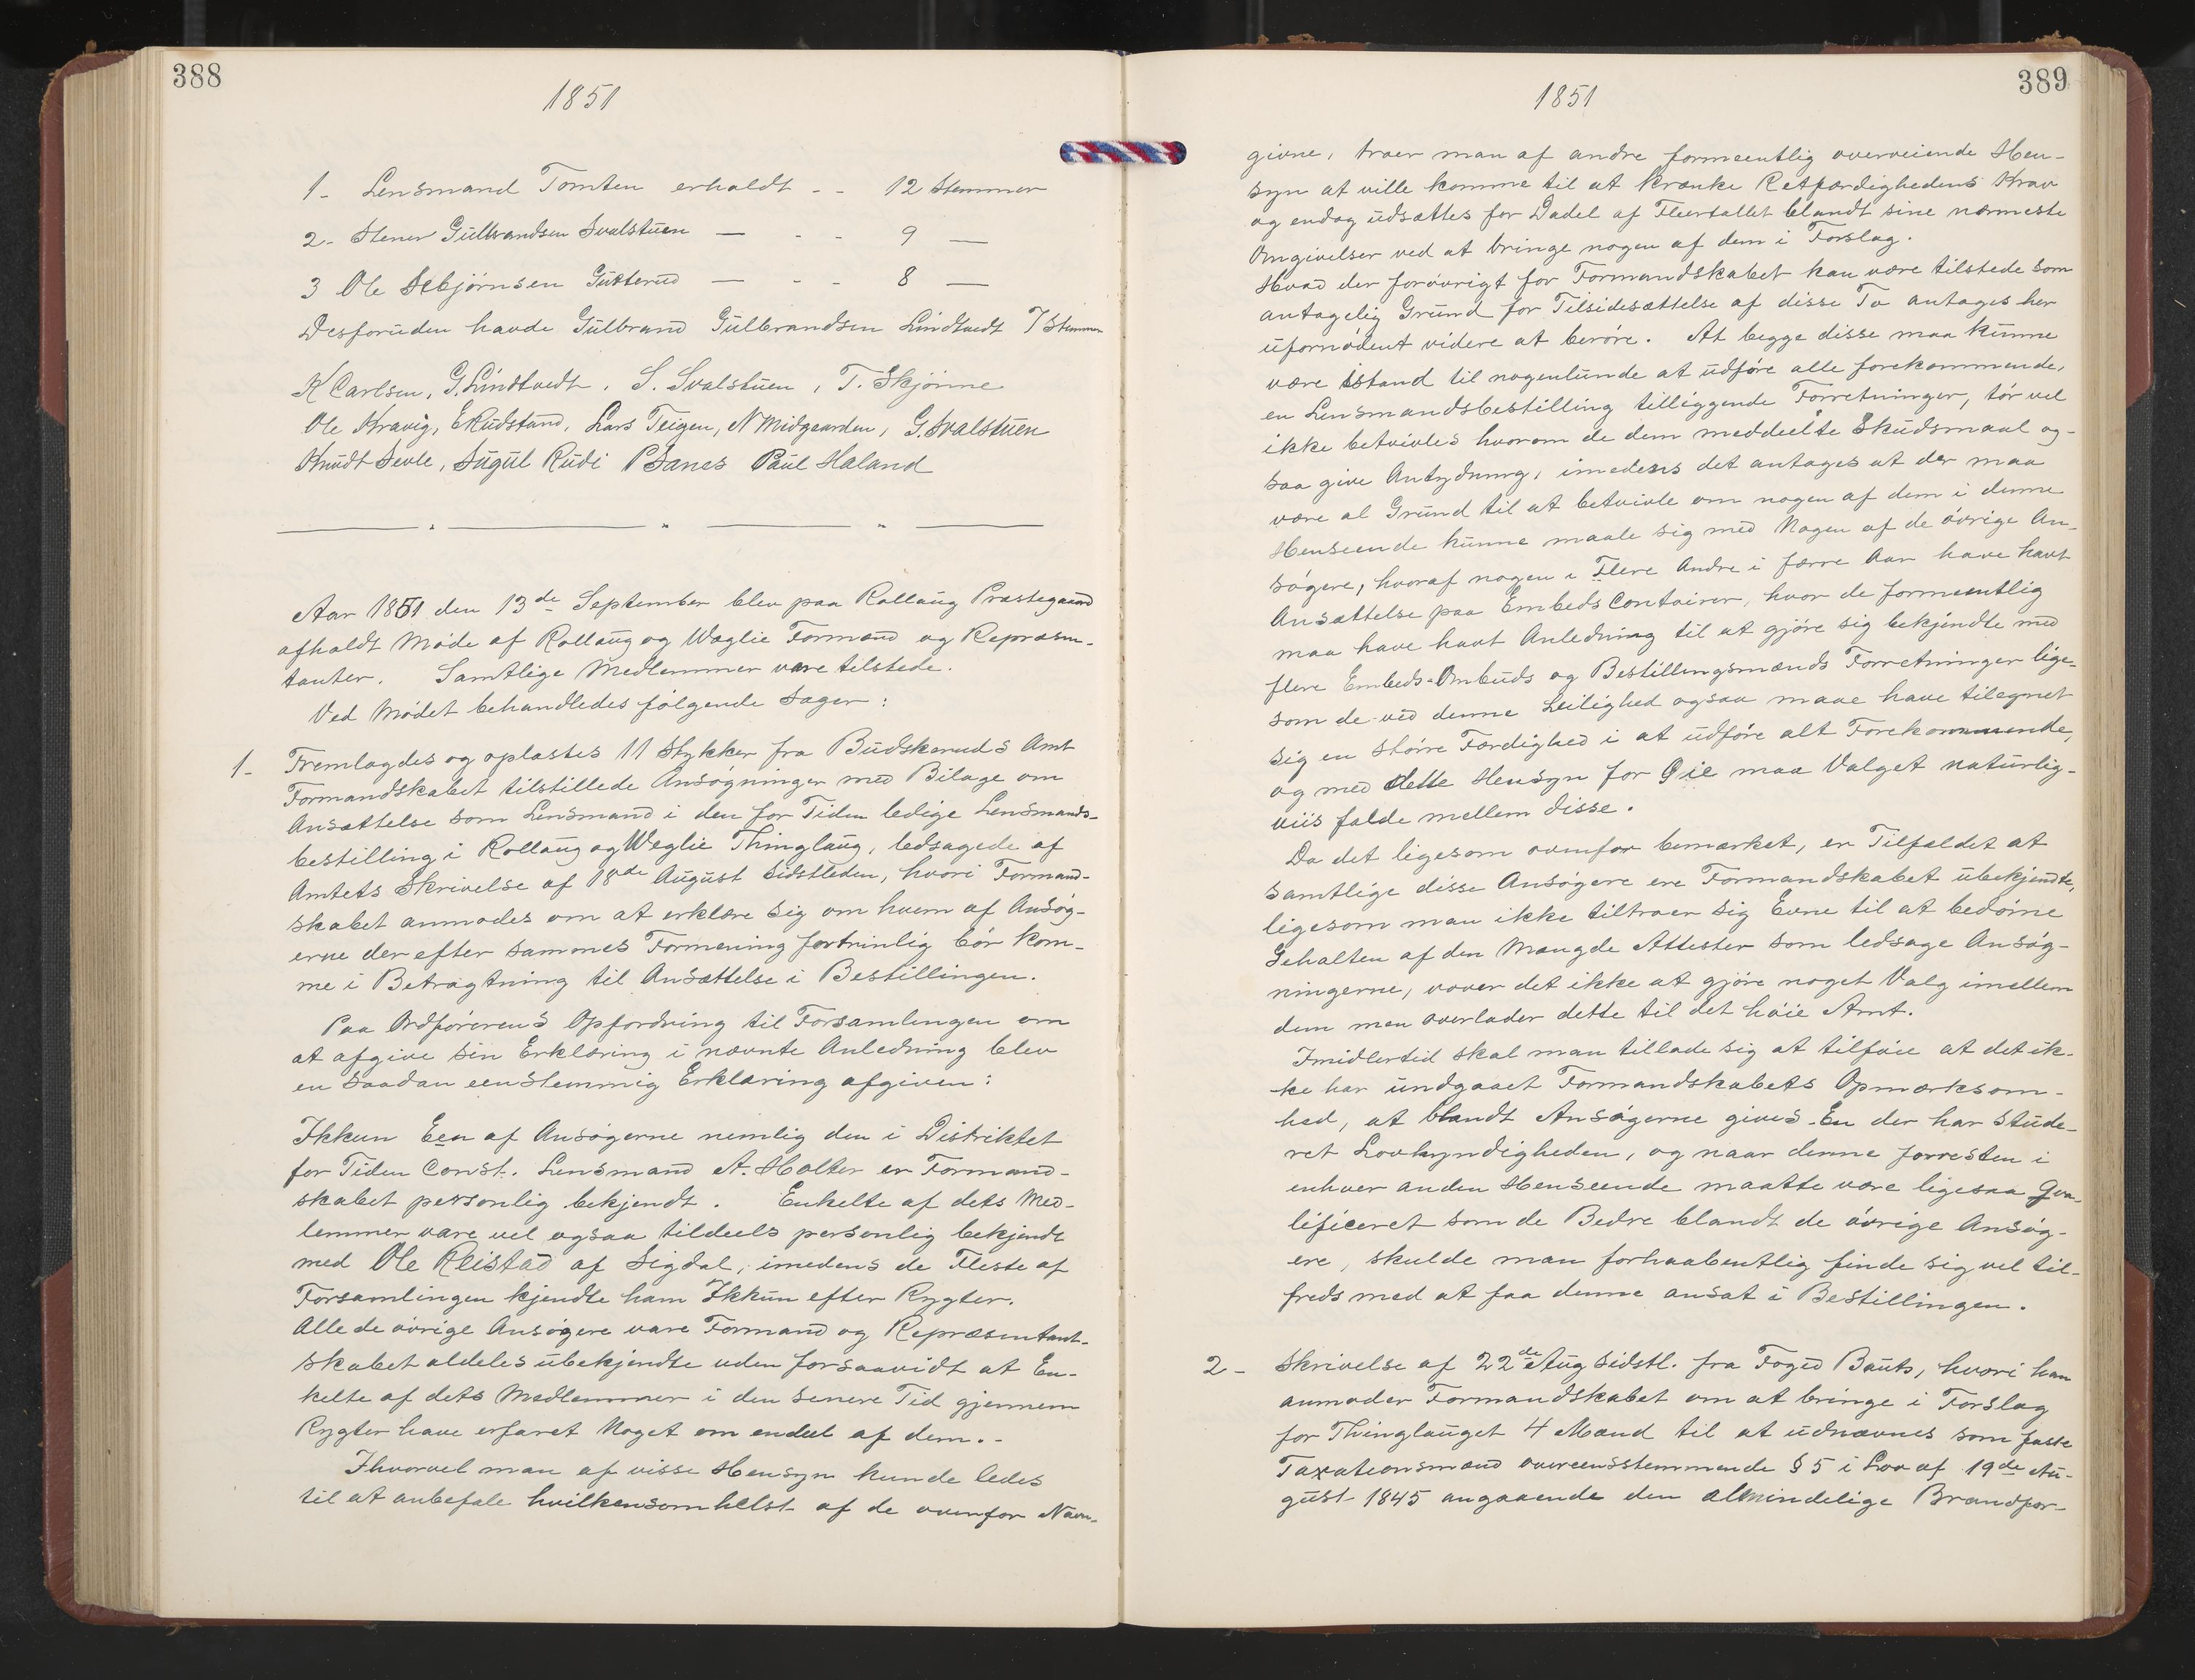 388
1851
1- Lensmand Tomten erholdt - - 12 Stemmer
2- Stener Gulbrandsen Svalstuen — - - 9 —
3 Ole Asbjørnsen Gutterud — - - 8 —
Desforuden havde Gulbrand Gulbrandsen Lindtvedt 7 Stemmer
K Carlsen, G. Lindtvedt, S. Svalstuen, T. Skjønne
Ole Kravig, E Rudstand, Lars Teigen, N Midgaarden, G. Svalstuen
Knudt Sevle, Sugul Rudi P Sanes Paul Haland
Aar 1851 den 13de September blev paa Rollaug Præstegaard
afholdt Møde af Rollaug og Wæglie Formænd og Repræsen-
tanter. Samtlige Medlemmer vare tilstede.
Ved Mødet behandledes følgende Sager:
1- Fremlagdes og oplæstes 11 Stykker fra Budskeruds Amt
Formandskabet tilstillede Ansøgninger med Bilage om
Ansættelse som Lensmand i den for Tiden ledige Lensmands-
bestilling i Rollaug og Weglie Thinglaug, ledsagede af
Amtets Skrivelse af 18de August sidstleden, hvori Formand-
skabet anmodes om at erklære sig om hvem af Ansøg-
erne der efter sammes Formening fortrinlig bör kom-
me i Betragtning til Ansættelse i Bestillingen.
Paa Ordförerens Opfordring til Forsamlingen om
at afgive sin Erklæring i nævnte Anledning blev
en saadan eenstemmig Erklæring afgiven:
Ikkun Een af Ansøgerne nemlig den i Distriktet
for Tiden Const. Lensmand A. Holter er Formand-
skabet personlig bekjendt. Enkelte af dets Med-
lemmer vare vel ogsaa tildeels personlig bekjendt
med Ole Reistad af Sigdal, imedens de Fleste af
Forsamlingen kjendte ham Ikkun efter Rygter.
Alle de övrige Ansögere vare Formand og Repræsentant-
skabet aldeles ubekjendte uden forsaavidt at En-
kelte af dets Medlemmer i den senere Tid gjennem
Rygter have erfaret Noget om endeel af dem.-
Ihvorvel man af visse Hensyn kunde ledes
til at anbefale hvilkensomhelst af de ovenfor Navn-
389
1851
givne, troer man af andre formeentlig overveiende Hen-
syn at ville komme til at krænke Retfærdighedens Krav
og endog udsættes for Dadel af Fleertallet blandt sine nærmeste
Omgivelser ved at bringe nogen af dem i Forslag.
Hvad der forövrigt for Formandskabet kan være tilstede som
antagelig Grund for Tilsidesættelse af disse To antages her
ufornödent videre at beröre. At begge disse maa kunne
være istand til nogenlunde at udföre alle forekommende,
en Lensmandsbestilling tilliggende Forretninger, tör vel
ikke betvivles hvorom de dem meddeelte Skudsmaal og-
saa give Antydning, imedens det antages at der maa
være al Grund til at betvivle om nogen af dem i denne
Henseende kunne maale sig med Nogen af de övrige An-
sögere, hvoraf nogen i Flere Andre i færre Aar have havt
Ansættelse paa Embeds Contoirer, hvor de formeentlig
maa have havt Anledning til at gjöre sig bekjendte med
flere Embeds-Ombuds og Bestillingsmænds Forretninger lige-
som de ved denne Leilighed ogsaa maae have tilegnet
sig en större Færdighed i at udföre alt Forekommende,
og med dette Hensyn for Øie maa Valget naturlig-
viis falde mellem disse.
Da det ligesom ovenfor bemærket, er Tilfældet at
samtlige disse Ansögere ere Formandskabet ubekjendte,
ligesom man ikke tiltroer sig Evne til at bedömme
Gehalten af den Mængde Attester som ledsage Ansøg-
ningerne, vover det ikke at gjöre noget Valg imellem
dem men overlader dette til det höie Amt.
Imidlertid skal man tillade sig at tilföie at det ik-
ke har undgaaet Formandskabets Opmærksom-
hed, at blandt Ansögerne gives En der har stude-
ret Lovkyndigheden, og naar denne forresten i
enhver anden Henseende maatte være ligesaa Qva-
lificeret som de Bedre blandt de övrige Ansög-
ere, skulde man forhaabentlig finde sig vel til-
freds med at faa denne ansat i Bestillingen.
2- Skrivelse af 22de Aug sidstl. fra Foged Bauts, hvori han
anmoder Formandskabet om at bringe i Forslag
for Thinglauget 4 Mænd til at udnævnes som faste
Taxationsmænd overeensstemmende § 5 i Lov af 19de Au-
gust 1845 angaaende den almindelige Brandfor-